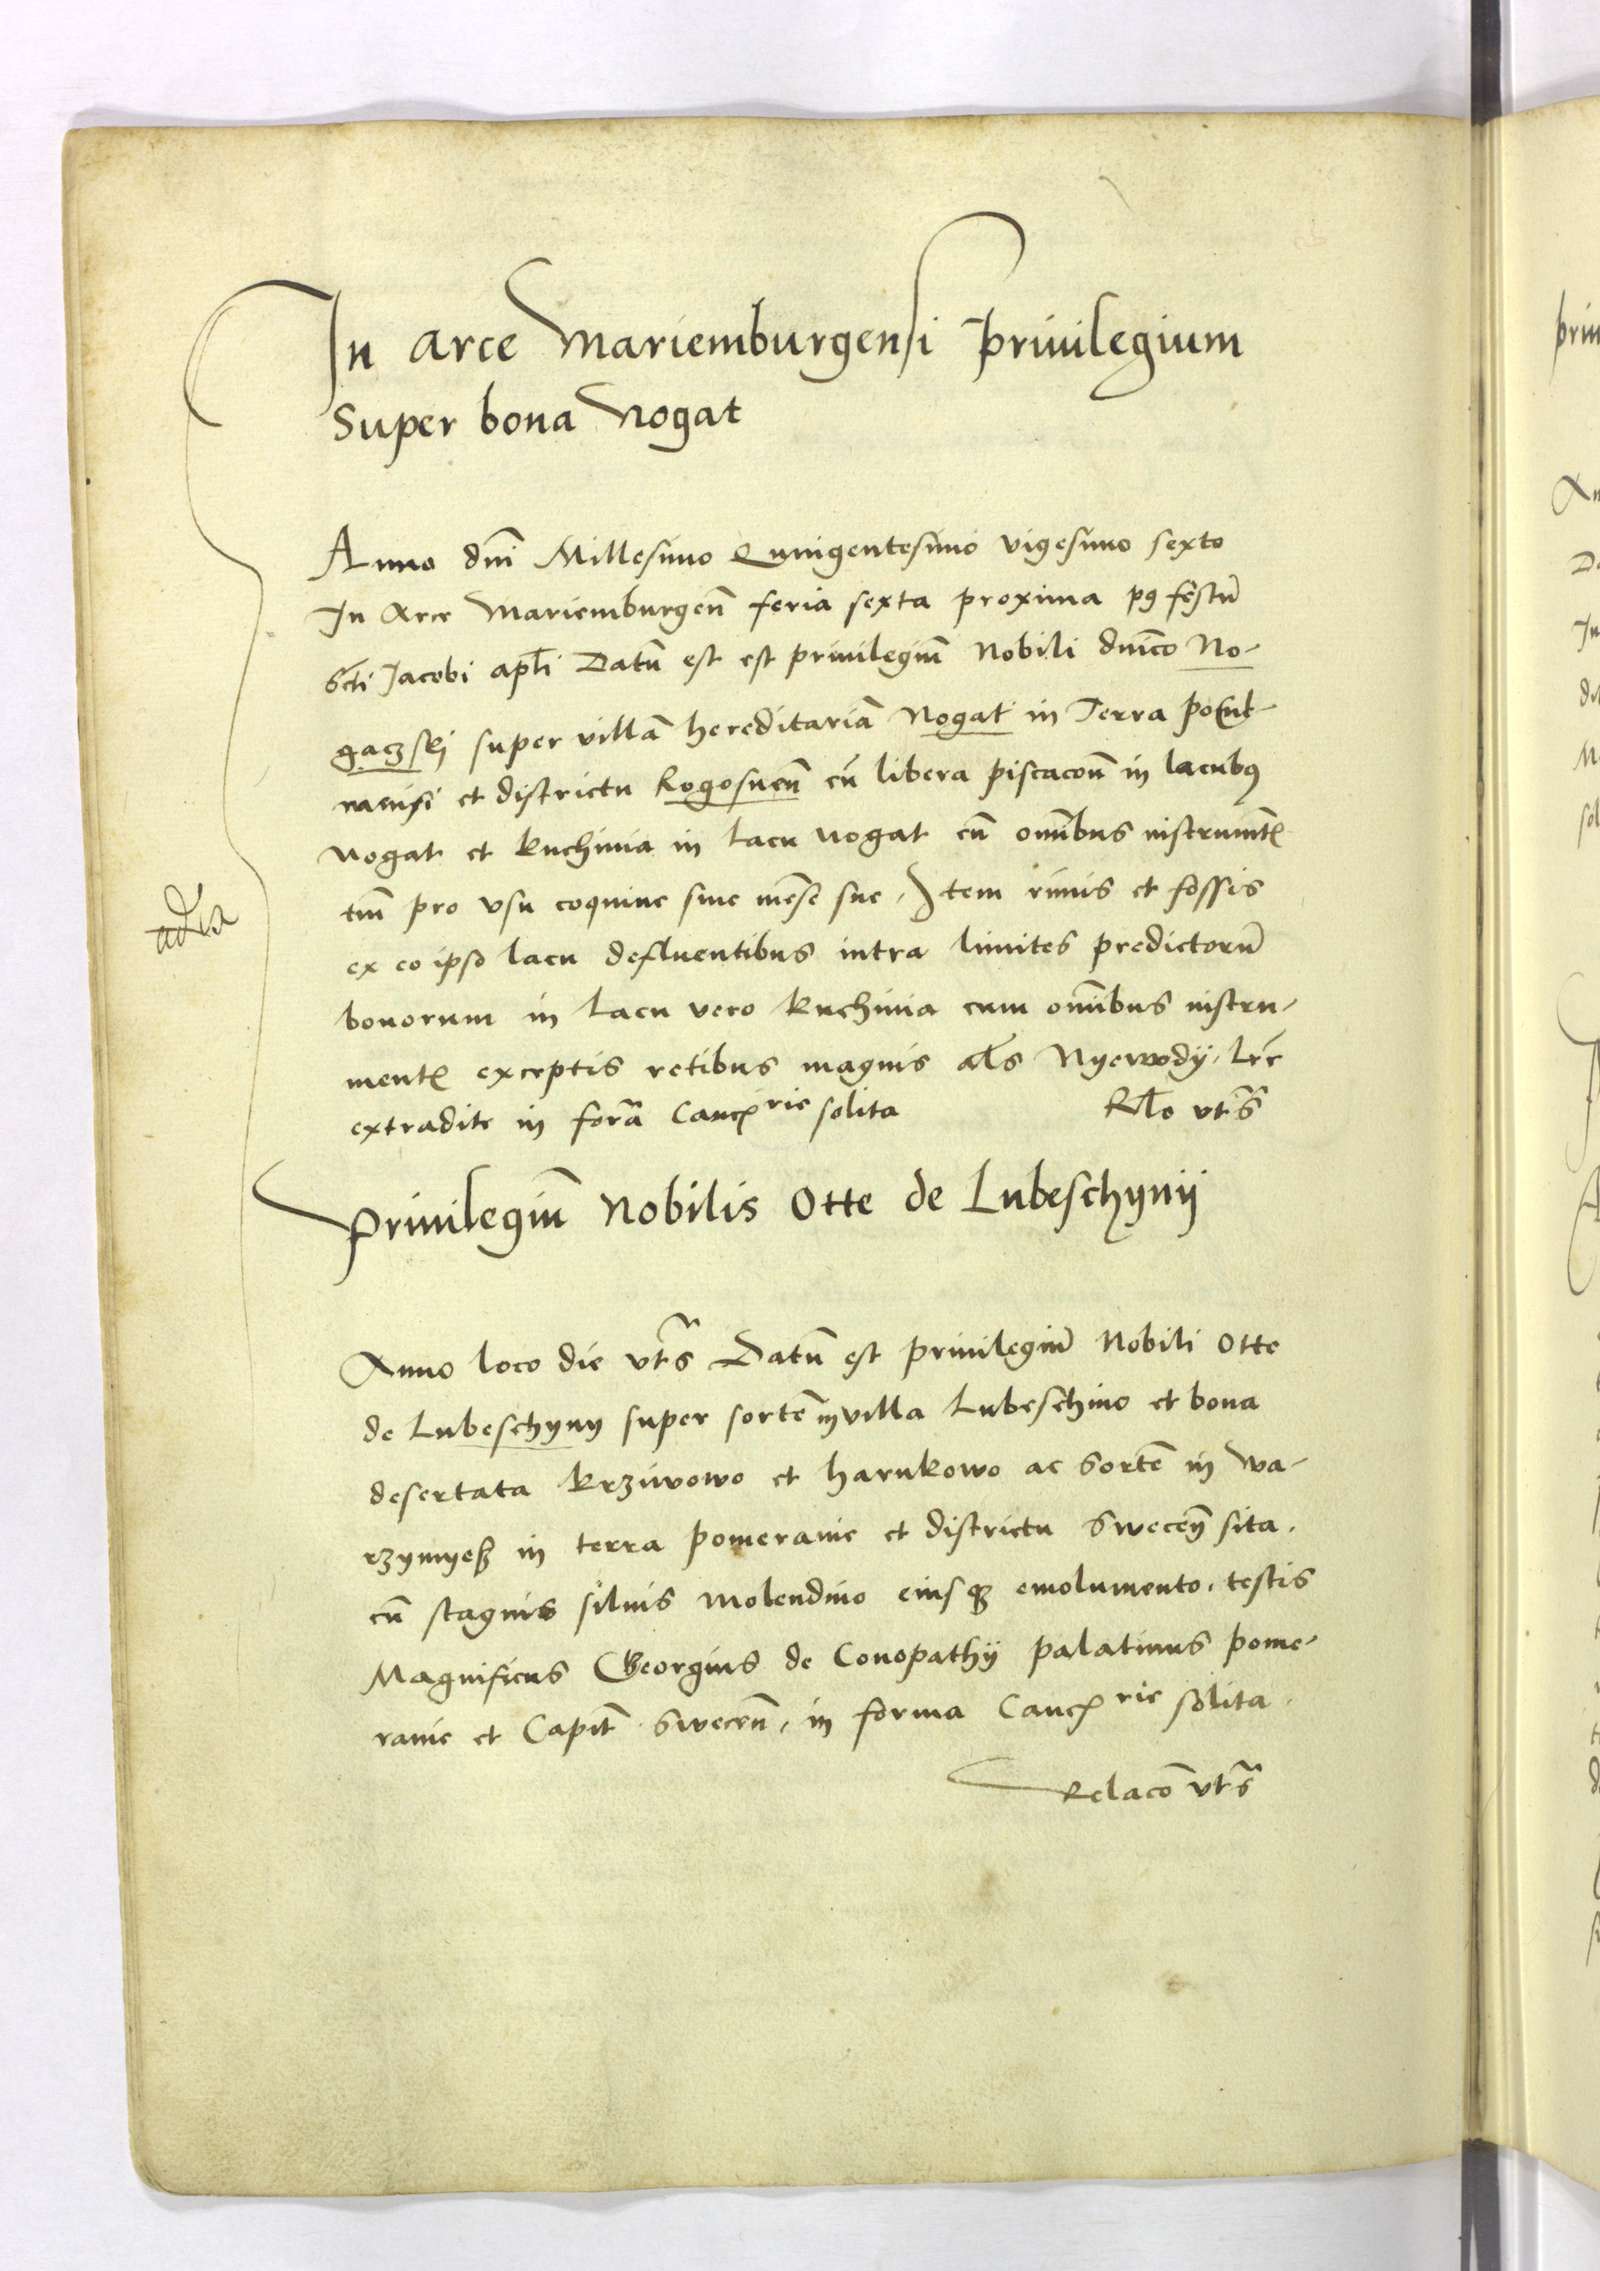 In arce Mariemburgensi Priuilegium
Super bona Nogat
Anno dni Millesimo Quingentesimo vigesimo sexto
In Arce Mariemburgen feria sexta proxima pꝰ festu
Scti Jacobi apli Datu est est priuilegiu Nobili
No-
gaczski super villa hereditaria Nogat in Terra
et districtu Rogosnen cu libera piscacon in lacubꝰ
Nogat et Kuchinia in lacu Nogat cu omibus
tm pro vsu coquine siue mese sue. Item riuis et fossis
ex eo ipso lacu defluentibus intra limites predictoru
bonorum in lacu vero Kuchinia cum omibus instru-
mentꝭ exceptis retibus magnis als Nyewody. Lre
extradite in fora Cancꝭrie solita Rlo vts
Priuilegiu Nobilis Otte de Lubeschynij
adia
Anno loco die vts Datu est priuilegiu Nobili Otte
de Lubeschyny super sorte in villa Lubeschino et bona
desertata Krziwowo et harnkowo ac Sorte in Wa-
rzymyeß in terra pomeranie et districtu Swecen sita.
cu stagnis siluis Molendino eiusqꝫ emolumento. testis
Magnificus Georgius de Conopathij palatinus pome-
ranie et Capit Swecen. in forma Cancꝭrie solita.
Relaco vts